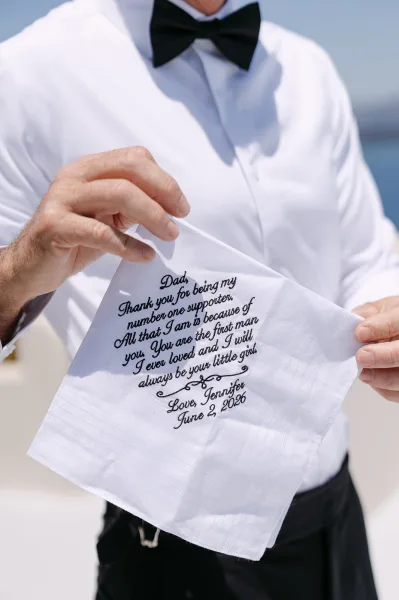 Dad,
Thank you for being my
number one supporter.
All that I am is because of
you. You are the first man
I ever loved and I will
always be your little girl.
Love, Jennifer
June 2, 2026